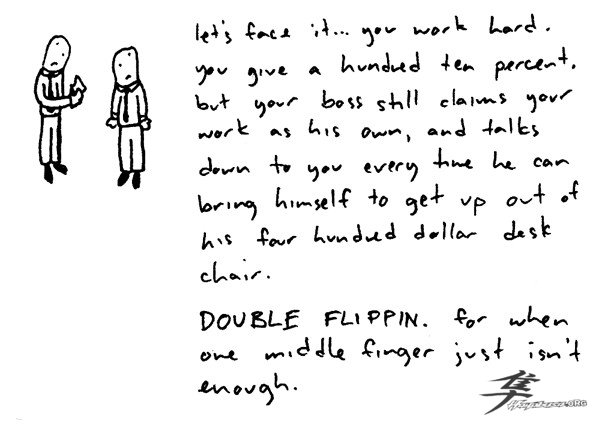 let's face it... you work hard.
you give a hundred ten percent.
but your boss still claims your
work as his own, and talks
down to you every time he can
bring himself to get up out of
his four hundred dollar desk
chair.
DOUBLE FLIPPIN. for when
one middle finger just isn't
enough.
隼
.ORG